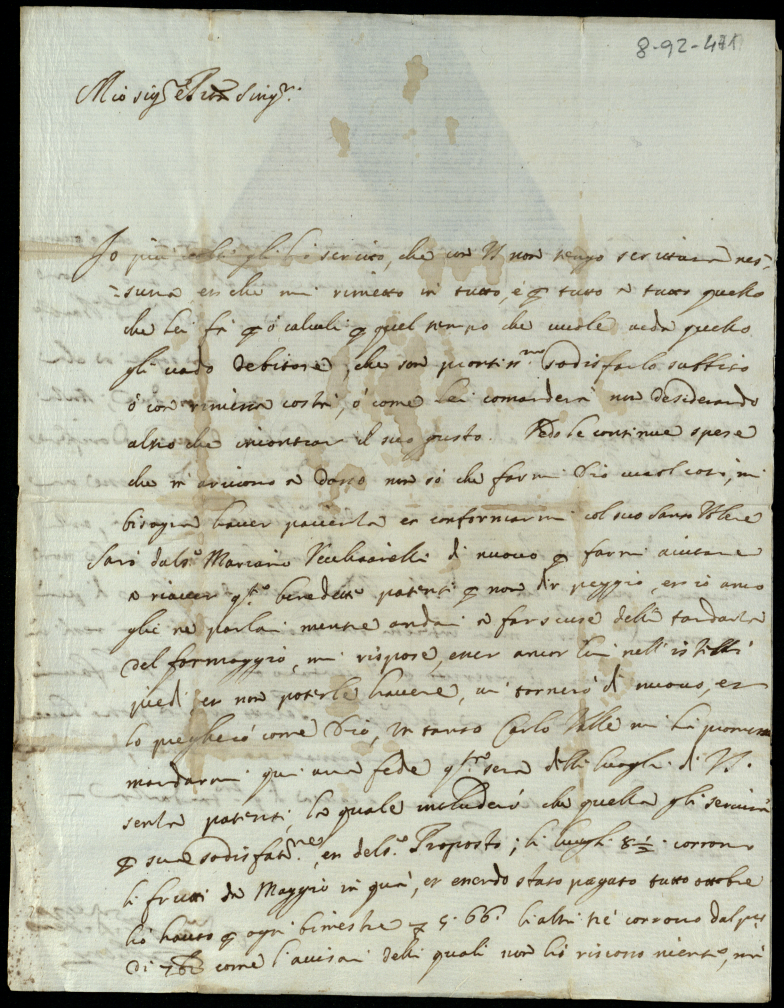 8-92-471
Mio sig.r e Pron Sing.r
Io più gli hò scritto, che con VS non tengo scrittura nes-
-suna, et che mi rimetto in tutto, e per tutto a tutto quello
che lei fà per ò calcoli per quel tempo che vuole veda quello
gli vado debitore, che son prontiss.mo sodisfarlo subbito
ò con rimessa costì, ò come lei comanderà non desiderando
altro che incontrar il suo gusto. Vedo le continue spese
che m'arivono a dosso non sò che farmi Dio vuol così, mi
bisogna haver pacienza et conformarmi col suo santo Volere
Sarò dal s.r Mariano Vecchiarelli di nuovo per farmi aiutare
a riaver q.te benedette patenti per non dir peggio, et io anco
glie ne parlai mentre andai a far scuse della tardanza
del formaggio, mi rispose, esser ancor lui nell'istessi
piedi, et non poterle havere, vi tornerò di nuovo, et
lo pregherò come Dio, in tanto Carlo Valle mi hà promesso
mandarmi qui una fede q.ta sera delli luoghi di VS.
senza patenti, la quale includerò che quella gli servirà
per sua sodisfat.ne, et del s.r Proposto; li luoghi 8½ corrono
li frutti da Maggio in quà, et essendo stato pagato tutto ottobre
hò hauto per ogni bimestre 5.66 li altri tré corrono dal p.o
di come l'avisai delli quali non hò riscosso niente, mà